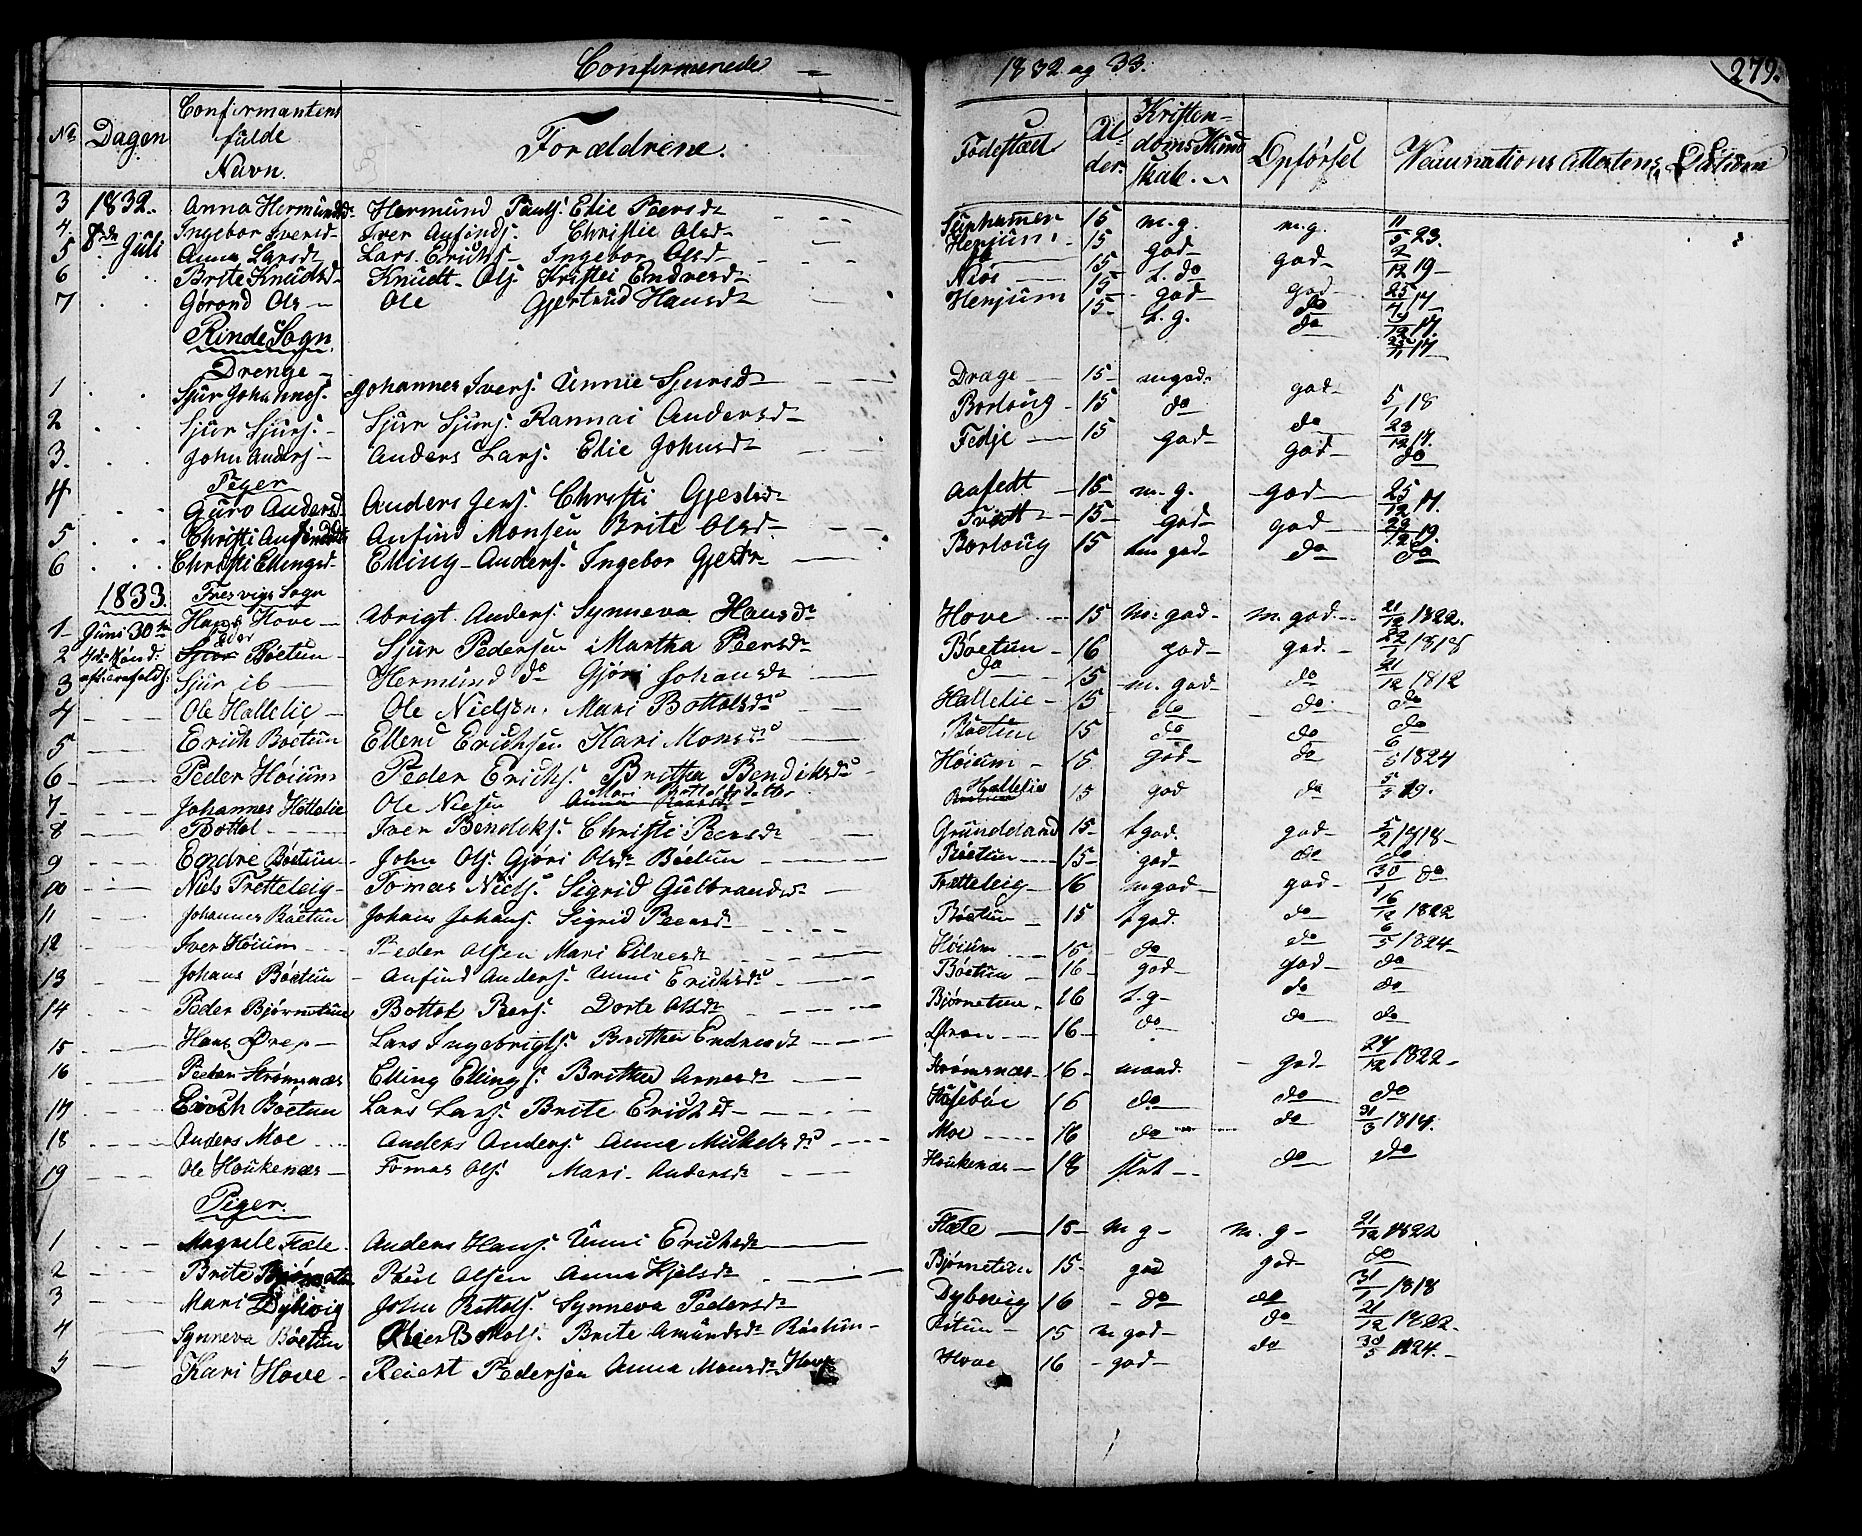 Confirmerede 1832 og 33. 279.
No Dagen Confirmantens fulde Navn. Forældrene. Födested Alder. Kristendoms Kundskab. Opförsel Vaccinations Attestens Datum
3 1832. Anna Hermundsdr Hermund Pauls. Elie Peersdr 15 m.g. m.g. 23.
4. 8de Juli Ingebor Iversd- Iver Anfinds. Christie Olsd- Henjum 15 god- god- 19-
5 Anna Larsdr Lars Erichs- Ingebor Olsd- do 15- t. do god-
6 Brite Knudsd- Knudt Ols. Kristi Endresdr Niös 15- god- do
7 Görond Ols- Ole Gjertrud Hansdr Henjum 15- t. g. do
Rinde Sogn
Drenge-
1 Sjur Johannes. Johannes Ivers. Unnie Sjursdr Drage 15- mgod- god- 5/1 18
2 Sjur Sjurs. Sjur Sjurs. Rannai Andersdr Borloug 15 do do 23/12 17.
3. John Anders- Anders Lars. Elie Johnsdr Fedje 15 god- god- do
Piger
4 Guro Andersd Anders Jens. Christi Gjestsdr Aafedt 15- m.g. god 25/12 17.
5 Christi Anfindsdr Anfind Monsen Brite Olsd- 15- god- god- 19.
6 Christi Ellingsd- Elling Anders. Ingebor Gjestr- Borloug 15 god- do do
1833. Fresvigs Sogn
1- Juni 30te Hans Hove Abrigt Anders. Synneva Hansdr Hove 15 m. god- m. god. 21/12 1822.
2 4de Sönd: Peder Böetun- Sjur Pedersen Martha Peersdr Böetun 16 god- god. 22/1 1818
3 Sjur ib Hermund do Gjöri Johansdr do 15 m. god do 21/12 1812
4 Ole Hallelie Ole Nielsen. Mari Bottolsdr Hallelie 15 do do do
5 Erich Boetun Ellend Erichsen Kari Monsdr Böetun 15 do do do
6- Peder Höium Peder Erichs. Britha Bendiksdr Höium 15 god- do 6/5 1824
7- Johannes Hallelie Ole Nielsen Mari Bottolsdatter Hallelie 15 god do 5/5 19.
8 Bottol Iver Bendiks. Christi Peersdr Grundeland 15- t god. god- 5/2 1818-
9 Endre Böetun- John Ols. Gjöri Olsdr Böetun Böetun 15- god- do do
10 Niels Tretteteig- Tomas Niels. Sigrid Gulbrandsdr Trætteteig- 16 mgod- god- 30/1 do
11 Johannes Böetun Johans Johans. Sigrid Peersdr Böetun 15 t god. do 16/12 1822
12 Iver Höium Peder Olsen Mari Eilversdr Höium 15 do do 6/5 1824-
13 Johans Böetun Anfind Anders. Unni Erichsdr Böetun 16- god- god- do
14 Peder Björnetun Bottol Peers. Dorte Olsdr Björnetun 16 t.g- do do
15 Hans Ören- Lars Ingebrigts. Britha Endresdr Ören 16- do do do
16 Peder Strömsnæs Elling Ellings. Britha Arnesdr Strömsnæs 16- maad. - god- 24/12 1822-
17 Erich Böetun Lars Lars. Brite Erichsdr Huseböe 16 do do do
18 Anders Moe Anders Anders. Anna Mickelsdr Moe 16 do do 31/3 1814.
19 Ole Houkenæs- Tomas Ols. Mari Andersdr Houkenæs- 18 slet do do
Piger.
1 Magnile Flæte. Anders Hans. Unni Erichsdr Flæte 15- m g- m. g- 21/12 1822
2 Brite Björnetun Poul Olsen Anna Kjelsdr Björnetun 15- god god- do
3 Mari Dybevig John Bottols. Synneva Pedersdr Dybevig 16 - do do 31/1 1818
4 Synneva Böetun Bottols. Brite Amundsdr Böetun- 15 m god- do 21/12 1822.
5 Kari Hove- Reiert Pedersen Anna Monsdr Hove Hove 16 - god- do 30/5 1824.-